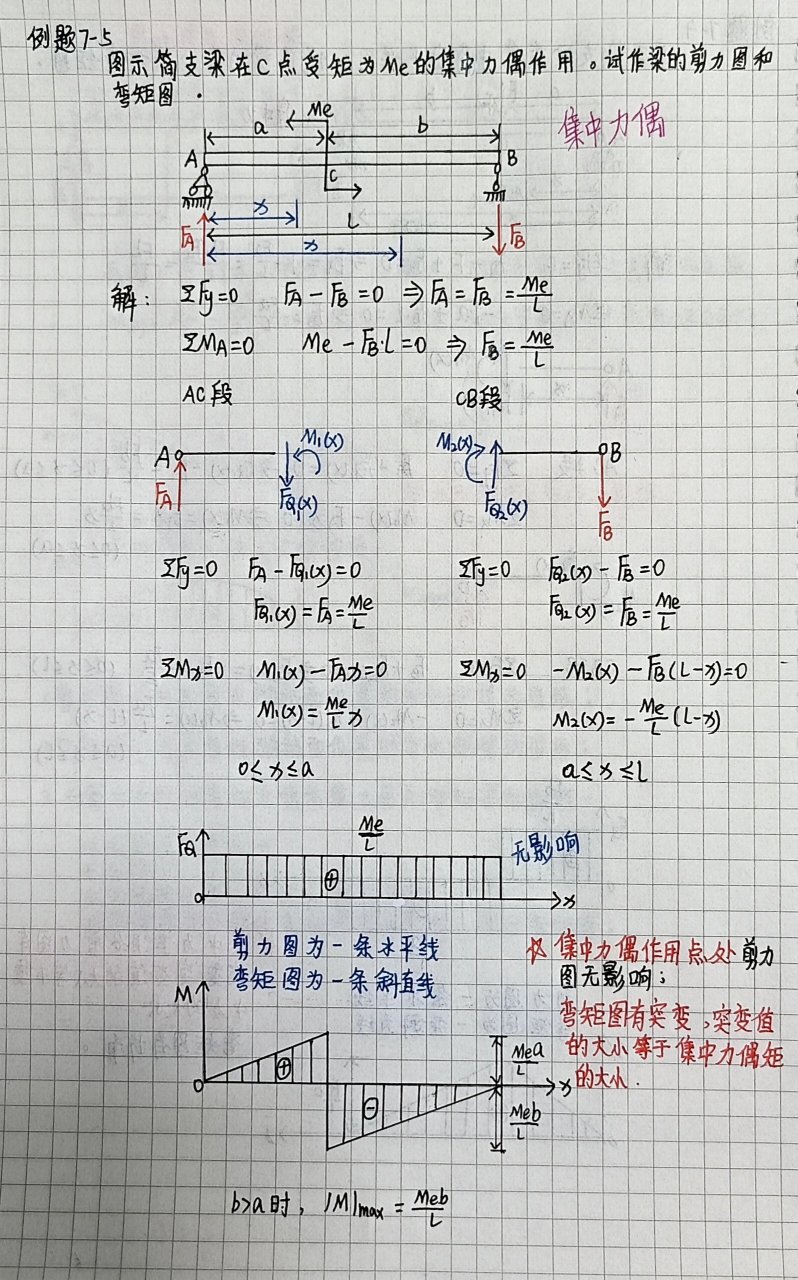 例题7-5
图示简支梁在C点受矩为Me的集中力偶作用。试作梁的剪力图和
弯矩图.
集中力偶
Me
a b
A B
C
x
L
FA FB
x
解: ΣFy=0 FA-FB=0 ⇒FA=FB=Me/L
ΣMA=0 Me-FB·L=0 ⇒ FB=Me/L
AC段 CB段
A M1(x) M2(x) B
FA FQ1(x) FQ2(x) FB
ΣFy=0 FA-FQ1(x)=0 ΣFy=0 FQ2(x)-FB=0
FQ1(x)=FA=Me/L FQ2(x)=FB=Me/L
ΣMx=0 M1(x)-FAx=0 ΣMx=0 -M2(x)-FB(L-x)=0
M1(x)=Me/L x M2(x)=-Me/L(L-x)
0≤x≤a a≤x≤L
Me/L
FQ 无影响
⊕
0 x
剪力图为一条水平线
弯矩图为一条斜直线
☆集中力偶作用点处剪力
图无影响;
弯矩图有突变,突变值
的大小等于集中力偶矩
的大小.
M
⊕ Mea/L
0 x
⊖ Meb/L
b>a时, |M|max=Meb/L